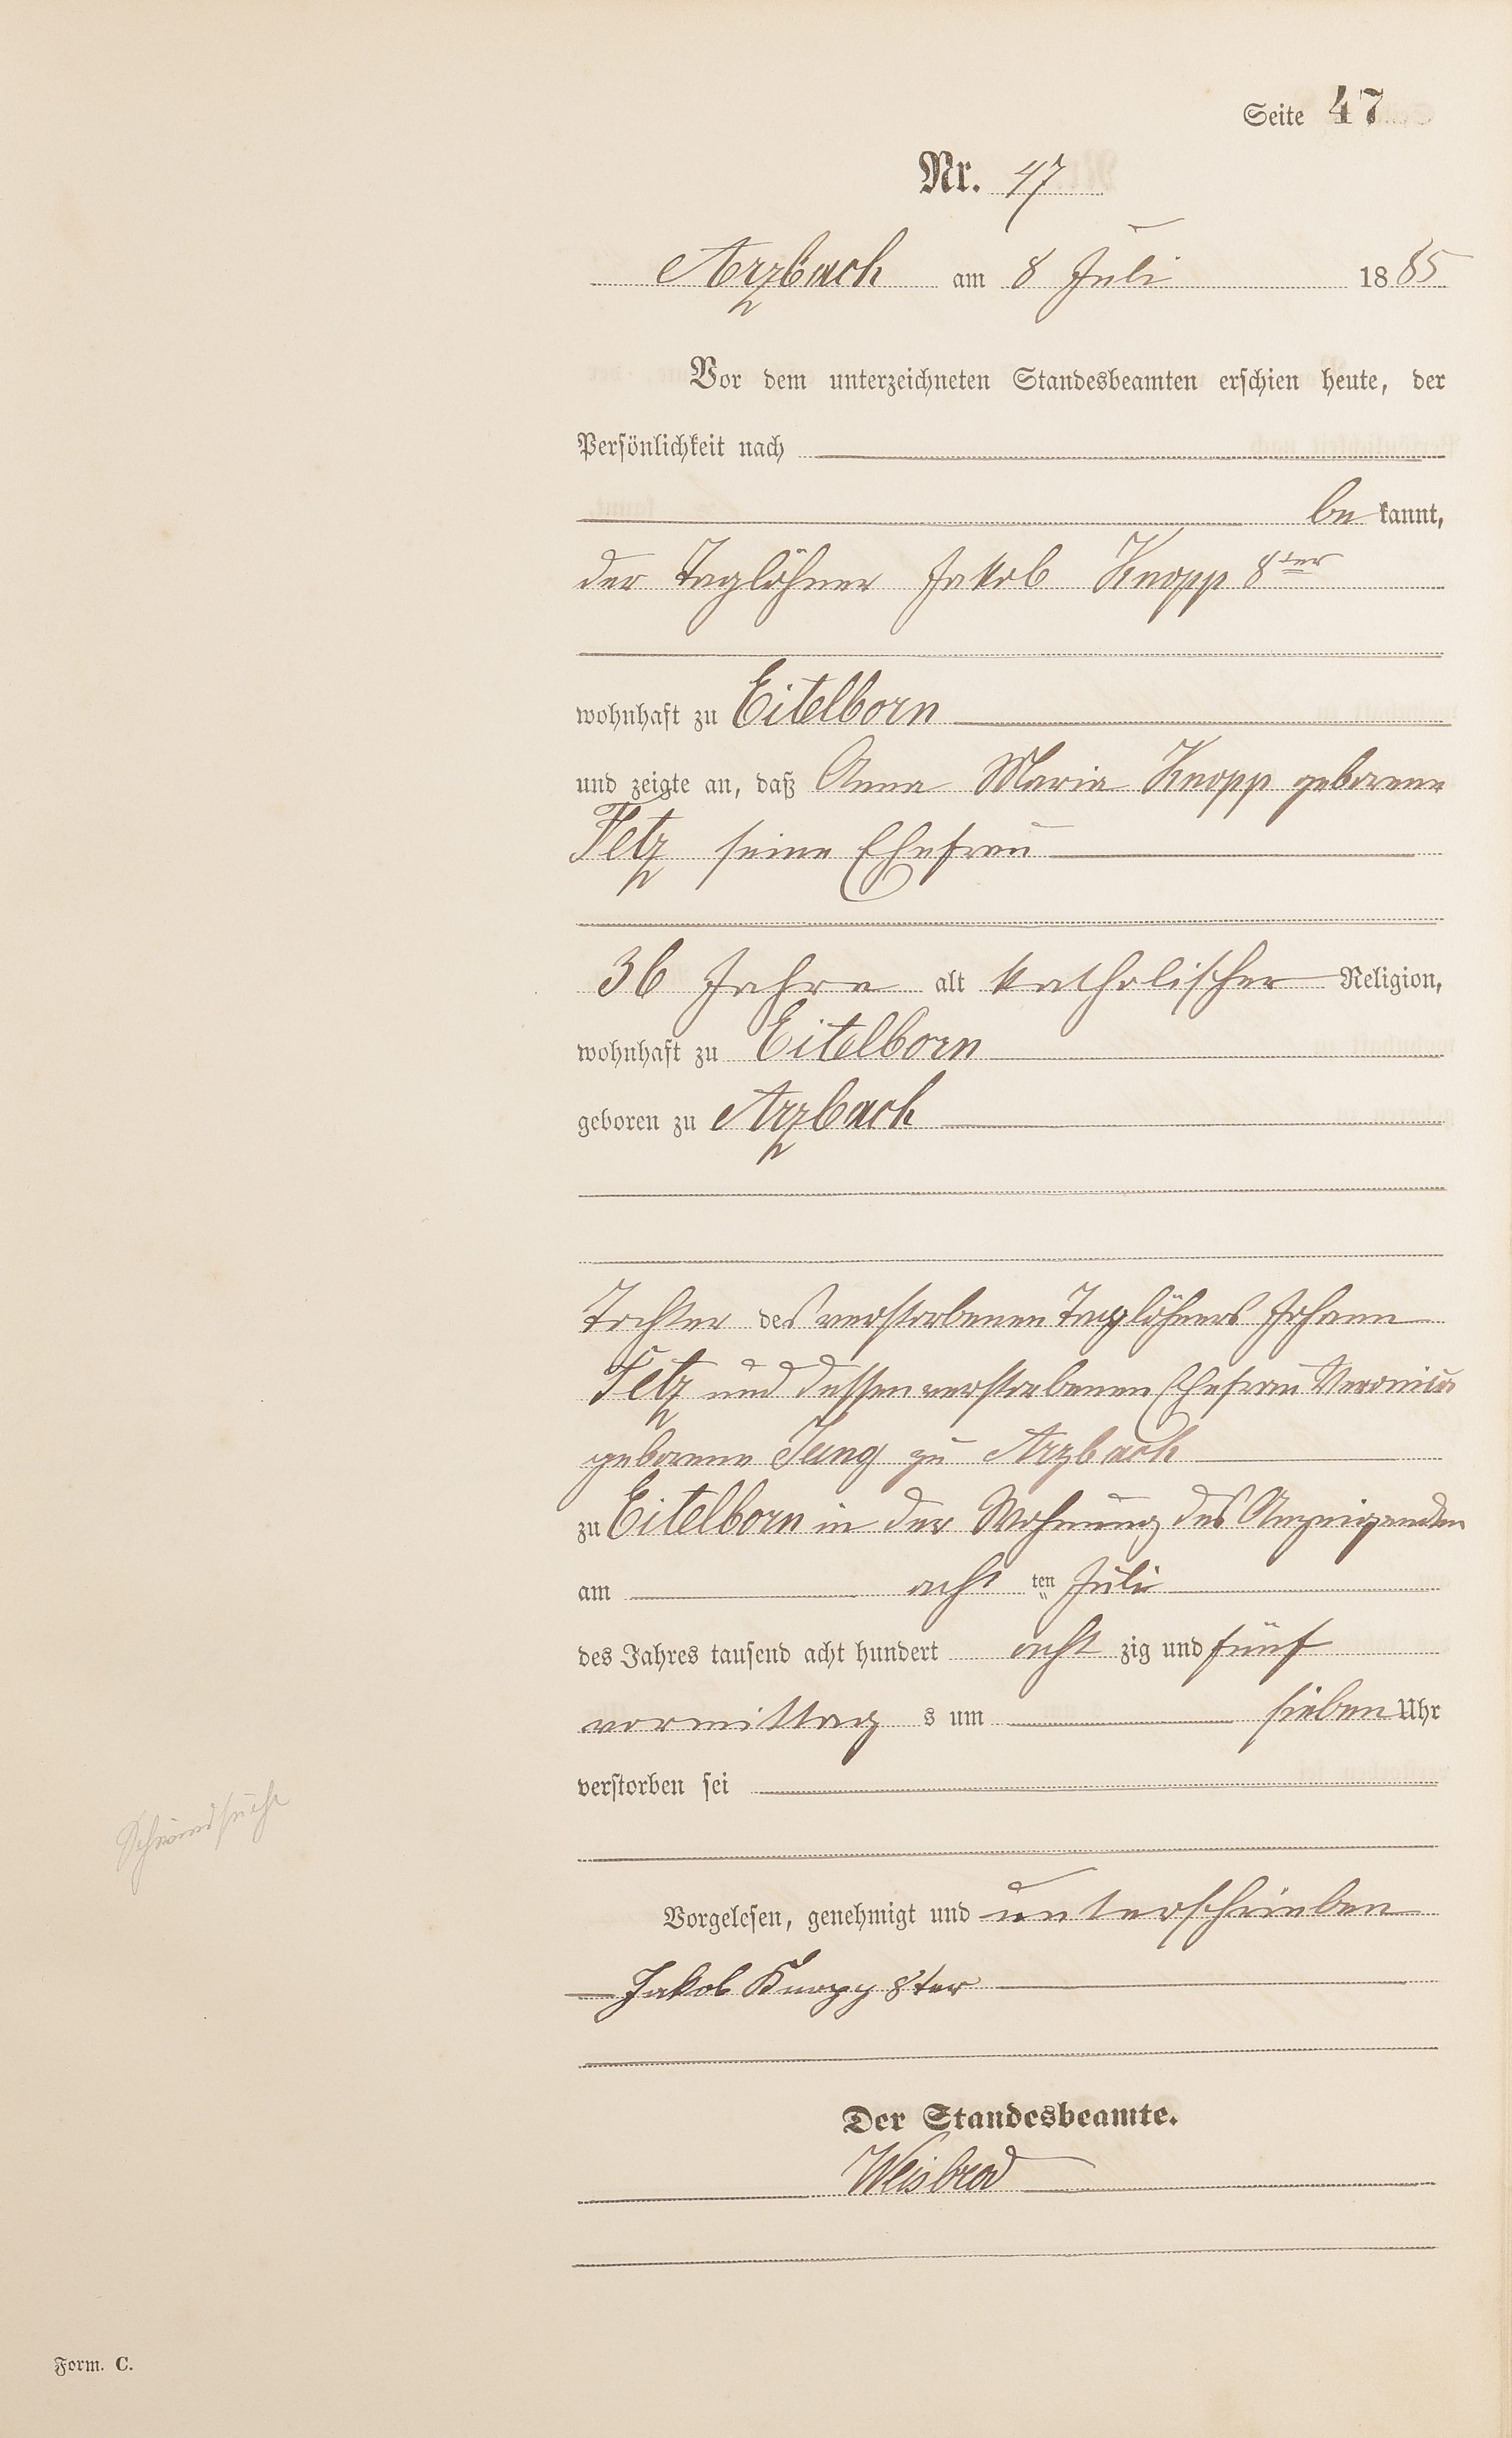 Seite 47
Nr. 47
Arzbach am 8 Juli 1885
Vor dem unterzeichneten Standesbeamten erschien heute, der
Persönlichkeit nach
be kannt,
der Taglöhner Jakob Knopp 8ter
wohnhaft zu Eitelborn
und zeigte an, daß Anna Maria Knopp geborene
Fetz seine Ehefrau
36 Jahre alt katholischer Religion,
wohnhaft zu Eitelborn
geboren zu Arzbach
Tochter des verstorbenen Taglöhners Johann
Fetz und dessen verstorbenen Ehefrau Veronica
geborene Jung zu Arzbach
zu Eitelborn in der Wohnung des Anzeigenden
am acht ten Juli
des Jahres tausend acht hundert acht zig und fünf
vormittag s um sieben Uhr
verstorben sei
Schwindsucht
Vorgelesen, genehmigt und unterschrieben
Jakob Knopp 8ter
Der Standesbeamte.
Weisbrod
Form. C.